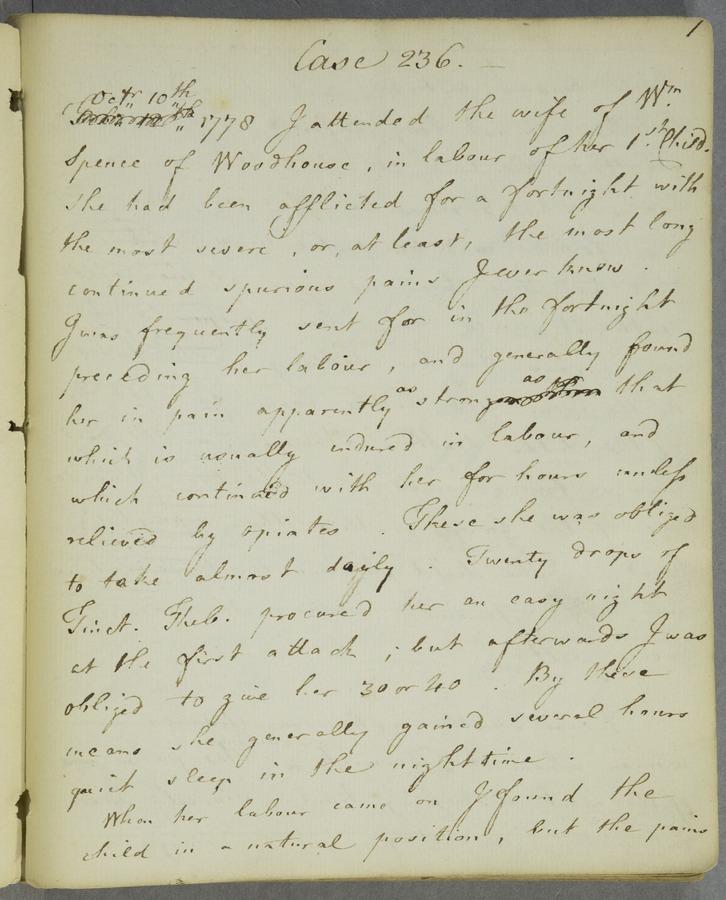 1
Case 236.
Octr 10th
1778 I attended the wife of Wm
Spence of Woodhouse, in labour of her 1st Child.
She had been afflicted for a fortnight with
the most severe, or, at least, the most long
continued spurious pains I ever know.
I was frequently sent for in the fortnight
preceding her labour, and generally found
her in pain apparently as strong as that
which is usually endured in labour, and
which continued with her for hours unless
relieved by opiates. These she was obliged
to take almost daily. Twenty drops of
Tinct. Theb. procured her an easy night
at the first attack; but afterwards I was
obliged to give her 30 or 40. By these
means she generally gained several hours
quiet sleep in the night time.
When her labour came on I found the
child in a natural position, but the pains